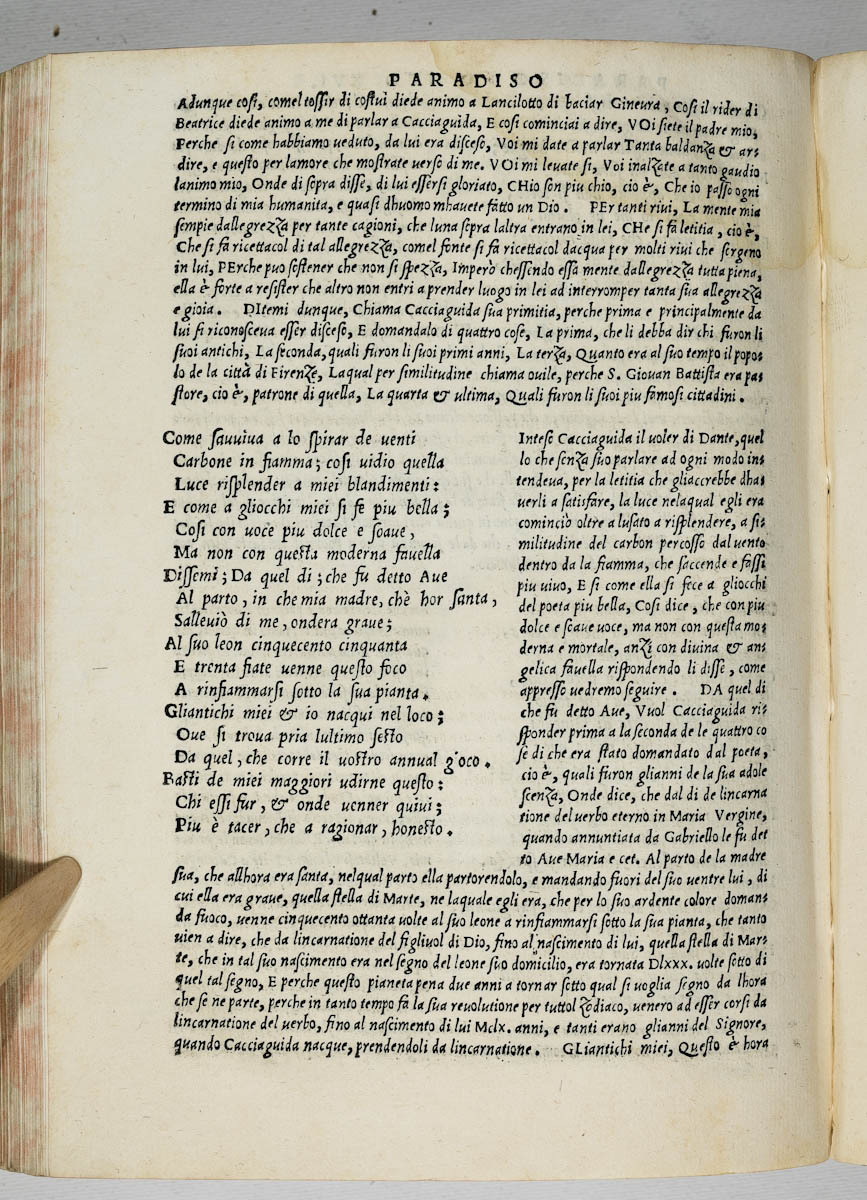 PARADISO
Adunque cosi, comel tossir di costui diede animo a Lancilotto di baciar Gineura, Cosi il rider di
Beatrice diede animo a me di parlar a Cacciaguida, E cosi cominciai a dire, VOi siete il padre mio,
Perche si come habbiamo ueduto, da lui era disceso, Voi mi date a parlar Tanta baldanza & ar-
dire, e questo per lamore che mostrate uerso di me. VOi mi leuate si, Voi inalzate a tanto gaudio
lanimo mio, Onde di sopra disse, di lui essersi gloriato, CHio son piu chio, cio è, Che io passo ogni
termino di mia humanita, e quasi dhuomo mhauete fatto un Dio. PEr tanti riui, La mente mia
sempie dallegrezza per tante cagioni, che luna sopra laltra entrano in lei, CHe si fa letitia, cio è,
Che si fa ricettacol di tal allegrezza, comel fonte si fa ricettacol dacqua per molti riui che sorgeno
in lui, PErche puo sostener che non si spezza, Imperò chessendo essa mente dallegrezza tutta piena,
ella è forte a resister che altro non entri a prender luogo in lei ad interromper tanta sua allegrezza
e gioia. DItemi dunque, Chiama Cacciaguida sua primitia, perche prima e principalmente da
lui si riconosceua esser disceso, E domandalo di quattro cose, La prima, che li debba dir chi furon li
suoi antichi, La seconda, quali furon li suoi primi anni, La terza, Quanto era al suo tempo il popo-
lo de la città di Firenze, Laqual per similitudine chiama ouile, perche S. Giouan Battista era pa-
store, cio è, patrone di quella, La quarta & ultima, Quali furon li suoi piu famosi cittadini.
Come sauuiua a lo spirar de uenti
Carbone in fiamma; cosi uidio quella
Luce risplender a miei blandimenti:
E come a gliocchi miei si fe piu bella;
Cosi con uoce piu dolce e soaue,
Ma non con questa moderna fauella
Dissemi; Da quel di; che fu detto Aue
Al parto, in che mia madre, chè hor santa,
Salleuiò di me, ondera graue;
Al suo leon cinquecento cinquanta
E trenta fiate uenne questo foco
A rinfiammarsi sotto la sua pianta.
Gliantichi miei & io nacqui nel loco;
Oue si troua pria lultimo sesto
Da quel, che corre il uostro annual gioco.
Basti de miei maggiori udirne questo:
Chi essi fur, & onde uenner quiui;
Piu è tacer, che a ragionar, honesto.
Intese Cacciaguida il uoler di Dante, quel
lo che senza suo parlare ad ogni modo in-
tendeua, per la letitia che gliaccrebbe dha-
uerli a satisfare, la luce nelaqual egli era
cominciò oltre a lusato a risplendere, a si-
militudine del carbon percosso dal uento
dentro da la fiamma, che saccende e fassi
piu uiuo, E si come ella si fece a gliocchi
del poeta piu bella, Cosi dice, che con piu
dolce e soaue uoce, ma non con questa mo-
derna e mortale, anzi con diuina & an-
gelica fauella rispondendo li disse, come
appresso uedremo seguire. DA quel di
che fu detto Aue, Vuol Cacciaguida ri-
sponder prima a la seconda de le quattro co
se di che era stato domandato dal poeta,
cio è, quali furon glianni de la sua adole
scenza, Onde dice, che dal di de lincarna
tione del uerbo eterno in Maria Vergine,
quando annuntiata da Gabriello le fu det
to Aue Maria e cet. Al parto de la madre
sua, che allhora era santa, nelqual parto ella partorendolo, e mandando fuori del suo uentre lui, di
cui ella era graue, quella stella di Marte, ne laquale egli era, che per lo suo ardente colore doman-
da fuoco, uenne cinquecento ottanta uolte al suo leone a rinfiammarsi sotto la sua pianta, che tanto
uien a dire, che da lincarnatione del figliuol di Dio, fino al nascimento di lui, quella stella di Mar-
te, che in tal suo nascimento era nel segno del leone suo domicilio, era tornata Dlxxx. uolte sotto di
quel tal segno, E perche questo pianeta pena due anni a tornar sotto qual si uoglia segno da lhora
che se ne parte, perche in tanto tempo fa la sua reuolutione per tuttol zodiaco, uenero ad esser corsi da
lincarnatione del uerbo, fino al nascimento di lui Mclx. anni, e tanti erano glianni del Signore,
quando Cacciaguida nacque, prendendoli da lincarnatione. GLiantichi miei, Questo è hora